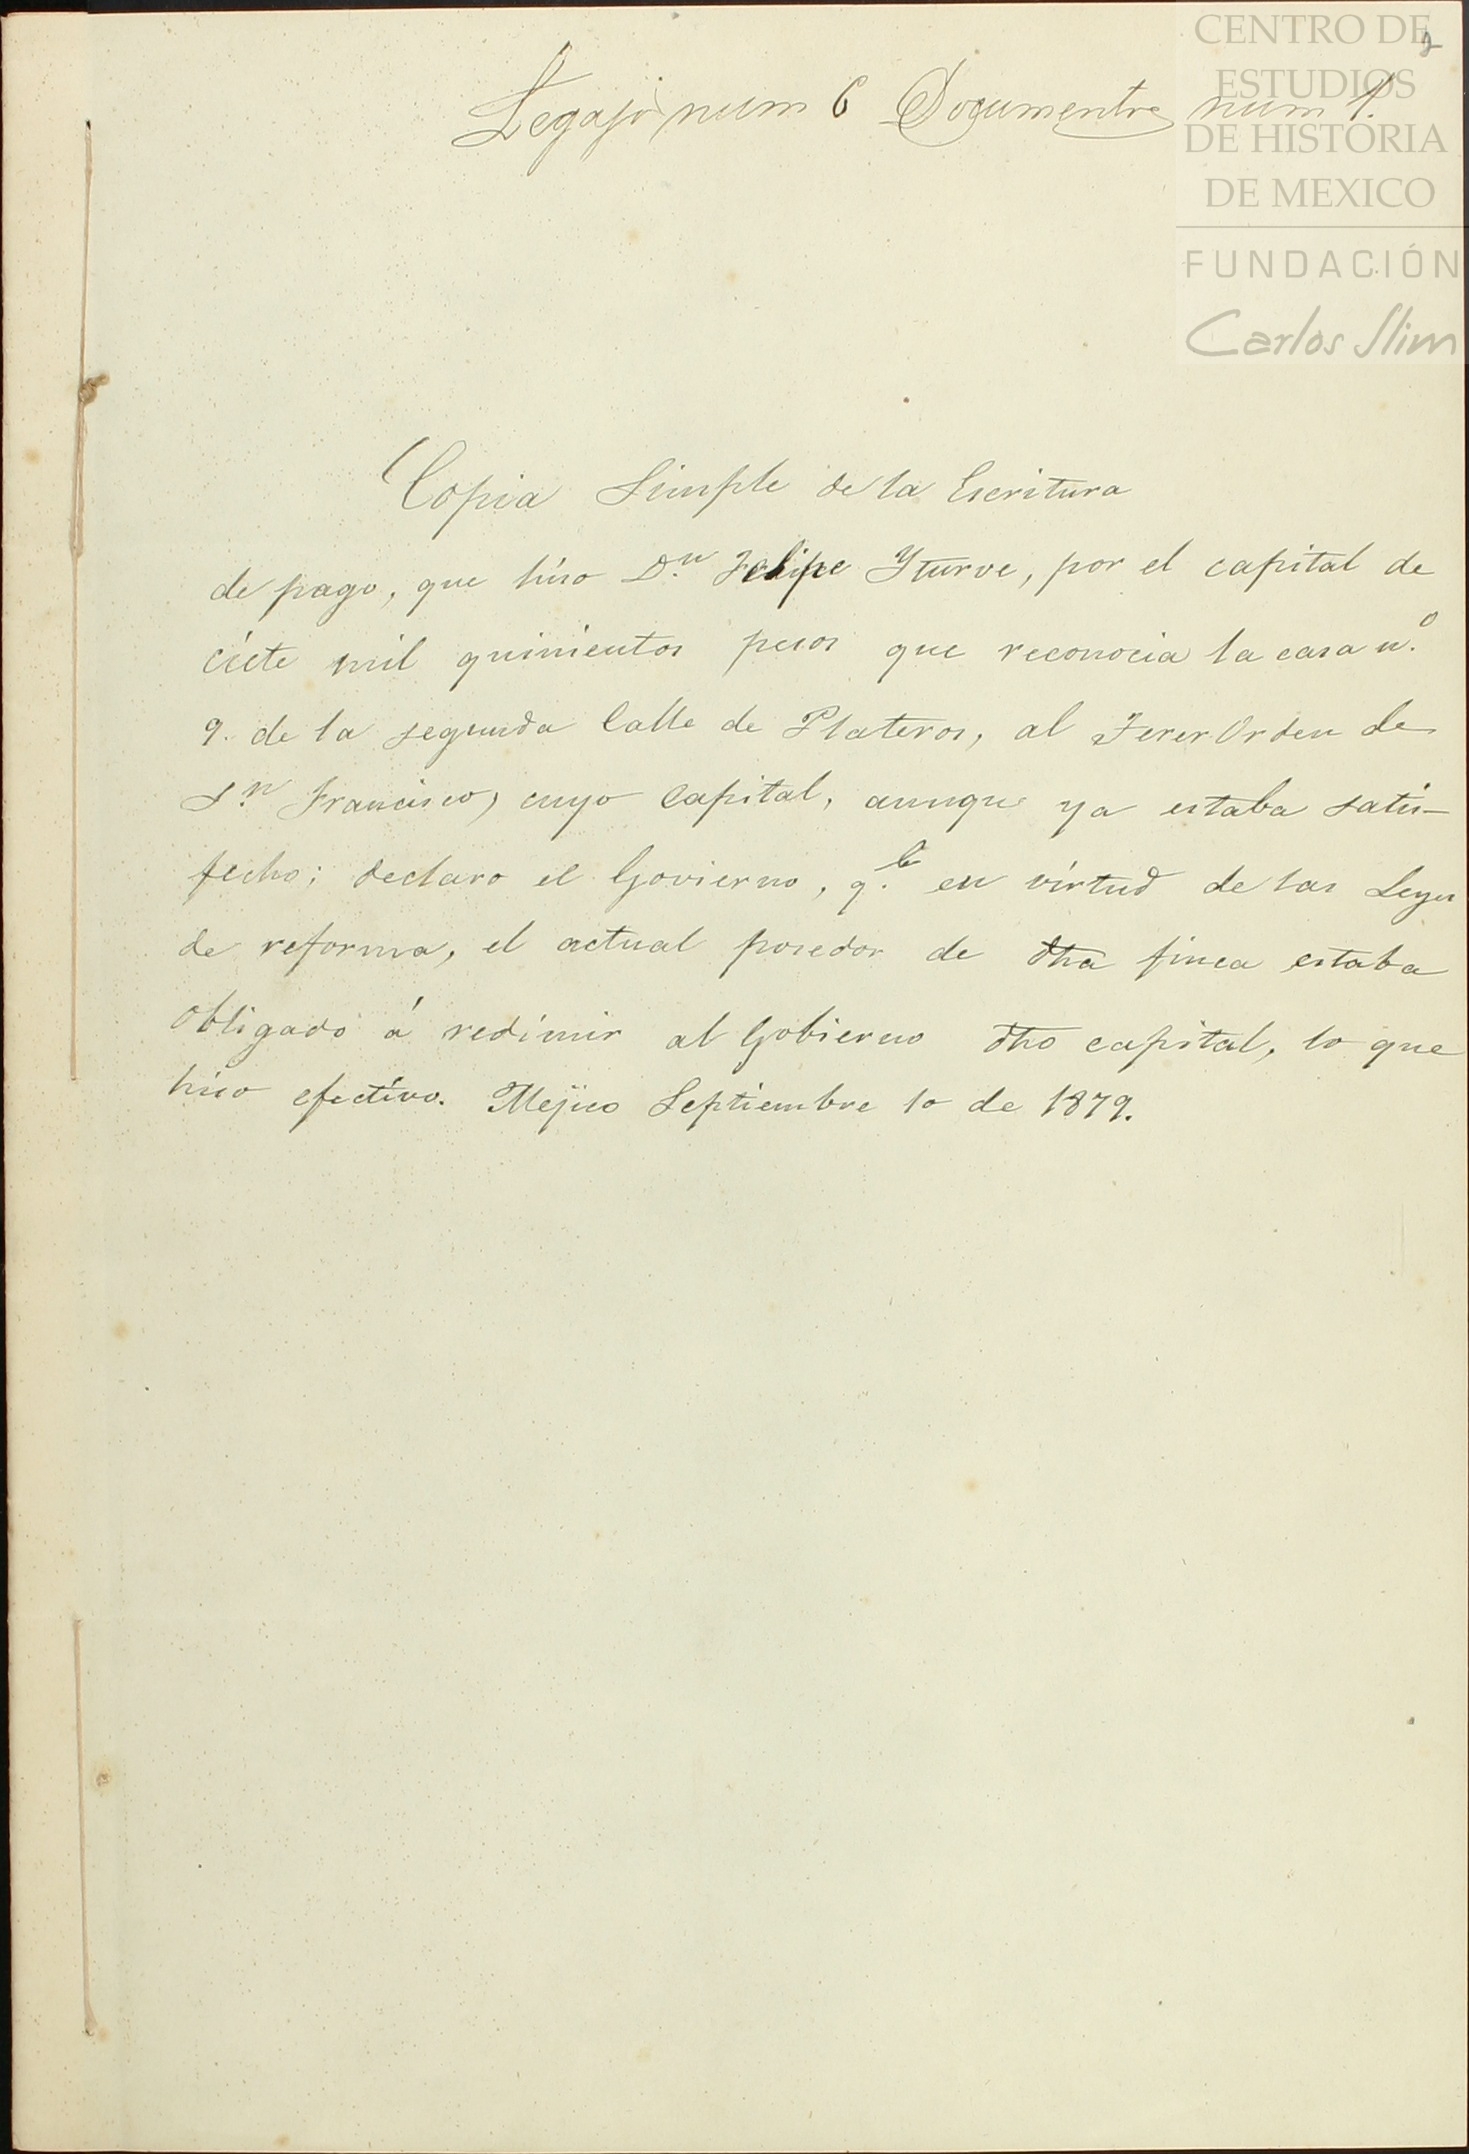 2
CENTRO DE
ESTUDIOS
DE HISTORIA
DE MEXICO
FUNDACIÓN
Carlos Slim
Legajo num 6 Documento num 1.
Copia Simple de la Escritura
de pago, que hiso D.n Felipe Yturve, por el capital de
ciete mil quinientos pesos que reconocia la casa n.o
9. de la segunda Calle de Plateros, al Tercer Orden de
S.n Francisco, cuyo Capital, aunque ya estaba satis-
fecho; declaro el Govierno, q.e en virtud de las Leyes
de reforma, el actual posedor de dha finca estaba
obligado á redimir al Gobierno dho capital, lo que
hiso efectivo. Mejico Septiembre 10 de 1879.